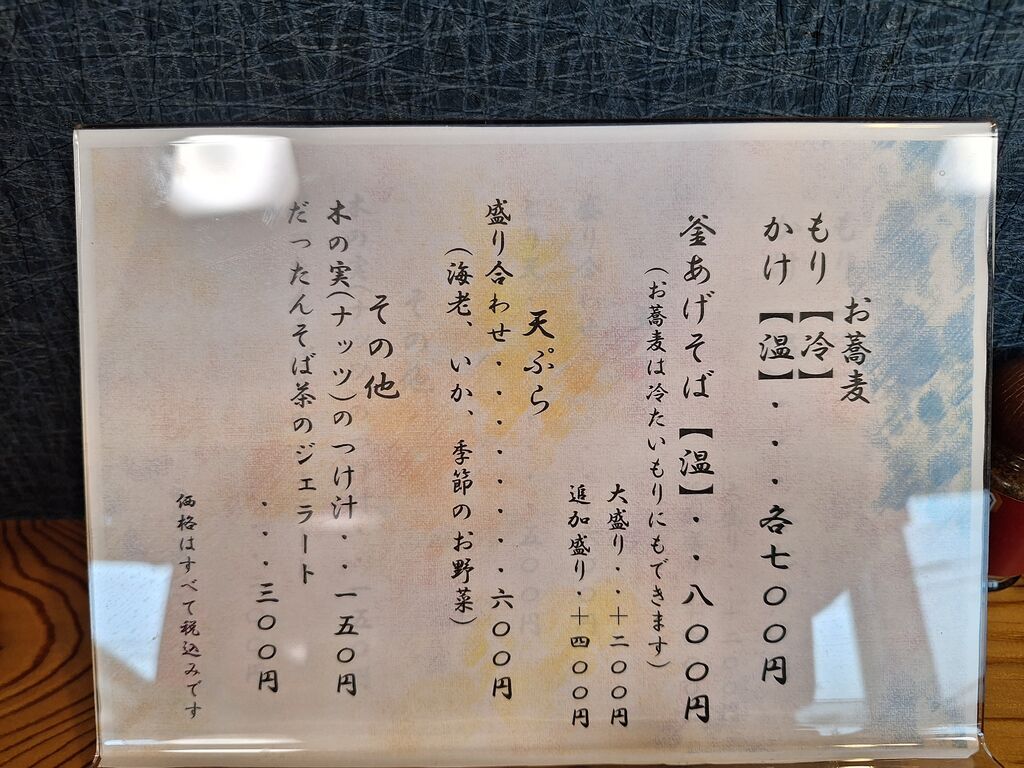 お蕎麦
もり【冷】
かけ【温】・・・・各七〇〇円
釜あげそば【温】・・・八〇〇円
(お蕎麦は冷たいもりにもできます)
大盛り・・十二〇〇円
追加盛り・十四〇〇円
天ぷら
盛り合わせ・・・・・・・・六〇〇円
(海老、いか、季節のお野菜)
その他
木の実(ナッツ)のつけ汁・・一五〇円
だったんそば茶のジェラート
・・・・三〇〇円
価格はすべて税込みです